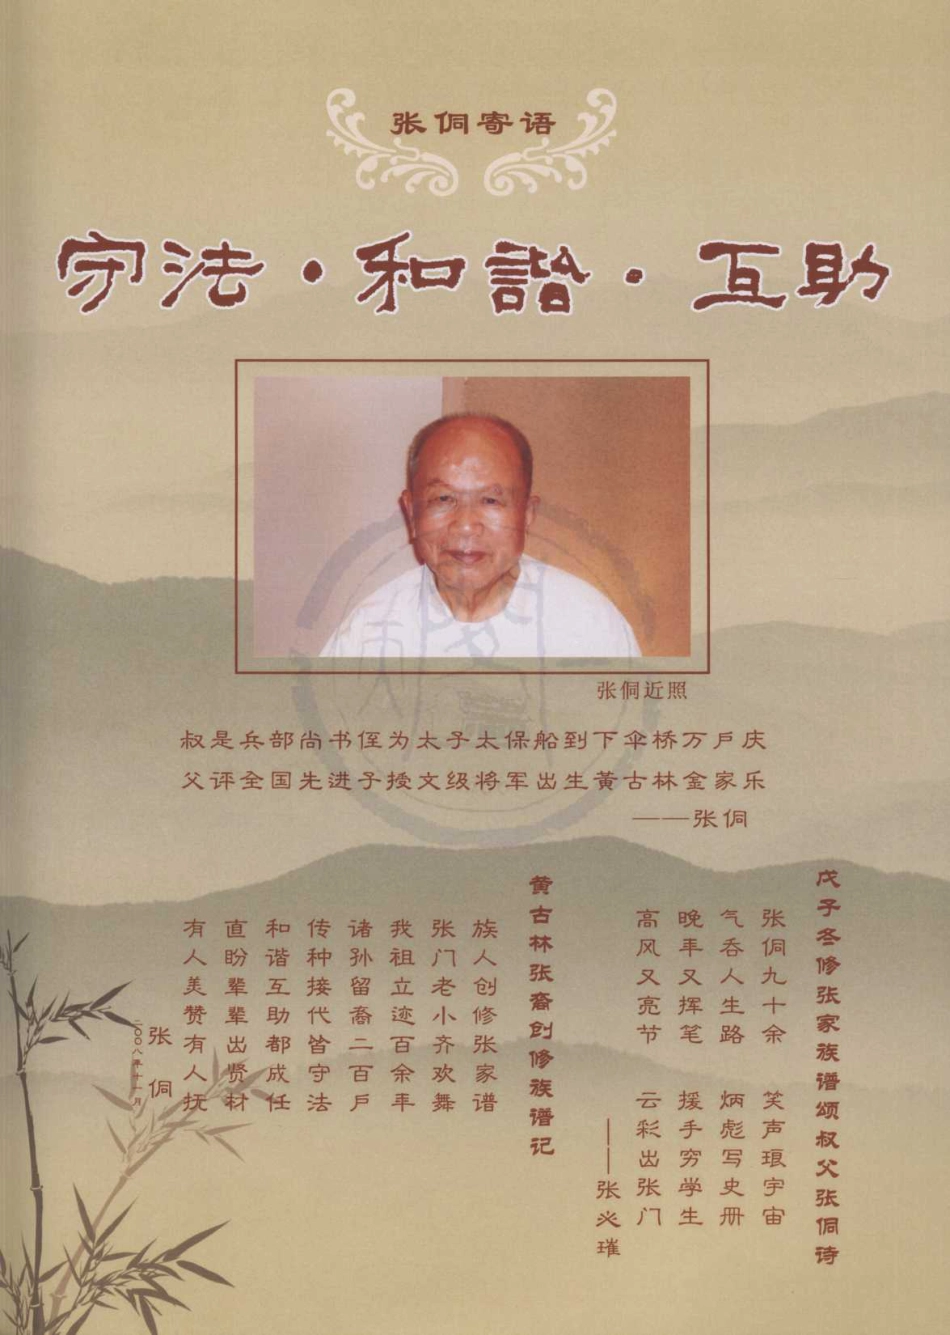 张侗寄语
守法·和諧·互助
张侗近照
叔是兵部尚书侄为太子太保船到下伞桥万戸庆
父评全国先进子授文级将军出生黄古林金家乐
——张侗
戊子冬修张家族谱颂叔父张侗诗
张侗九十余 笑声琅宇宙
气吞人生路 炳彪写史册
晚年又挥笔 援手穷学生
高风又亮节 云彩出张门
——张必璀
黄古林张裔创修族谱记
族人创修张家谱
张门老小齐欢舞
我祖立迹百余年
诸孙留裔二百戸
传种接代皆守法
和谐互助都成任
直盼辈辈出贤材
有人美赞有人抚
张侗
二〇〇八年十一月